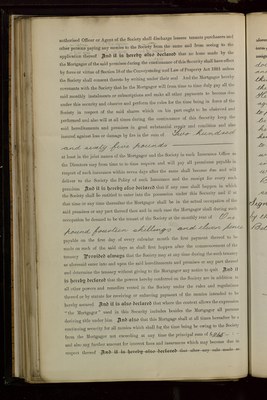 authorised Officer or Agent of the Society shall discharge lessees tenants purchasers and
other persons paying any moneys to the Society from the same and from seeing to the
application thereof And it is hereby also declared that no lease made by the
the Mortgagor of the said premises during the continuance of this Security shall have effect
by force or virtue of Section 18 of the Conveyancing and Law of Property Act 1881 unless
the Society shall consent thereto by writing under their seal And the Mortgagor hereby
covenants with the Society that he the Mortgagor will from time to time fully pay all the
said monthly instalments or subscriptions and make all other payments to become due
under this security and observe and perform the rules for the time being in force of the
Society in respect of the said shares which on his part ought to be observed and
performed and also will at all times during the continuance of this Security keep the
said hereditaments and premises in good substantial repair and condition and also
insured against loss or damage by fire in the sum of Two hundred
and sixty five pounds
at least in the joint names of the Mortgagor and the Society in such Insurance Office as
the Directors may from time to time require and will pay all premiums payable in
respect of such Insurance within seven days after the same shall become due and will
deliver to the Society the Policy of such Insurance and the receipt for every such
premium And it is hereby also declared that if any case shall happen in which
the Society shall be entitled to enter into the possession under this Security and if at
that time or any time thereafter the Mortgagor shall be in the actual occupation of the
said premises or any part thereof then and in such case the Mortgagor shall during such
occupation be deemed to be the tenant of the Society at the monthly rent of One
pound fourteen shillings and eleven pence
payable on the first day of every calendar month the first payment thereof to be
made on such of the said days as shall first happen after the commencement of the
tenancy Provided always that the Society may at any time during the such tenancy
as aforesaid enter into and upon the said hereditaments and premises or any part thereof
and determine the tenancy without giving to the Mortgagor any notice to quit And it
is hereby declared that the powers hereby conferred on the Society are in addition to
all other powers and remedies vested in the Society under the rules and regulations
thereof or by statute for receiving or enforcing payment of the moneys intended to be
hereby secured And it is also declared that where the context allows the expression
"the Mortgagor" used in this Security includes besides the Mortgagor all persons
deriving title under him And also that this Mortgage shall at all times hereafter be a
continuing security for all moneys which shall for the time being be owing to the Society
from the Mortgagor not exceeding at any time the principal sum of £265
and also any further amount for interest fines and insurances which may become due in
respect thereof And it is hereby also declared that after any sale made